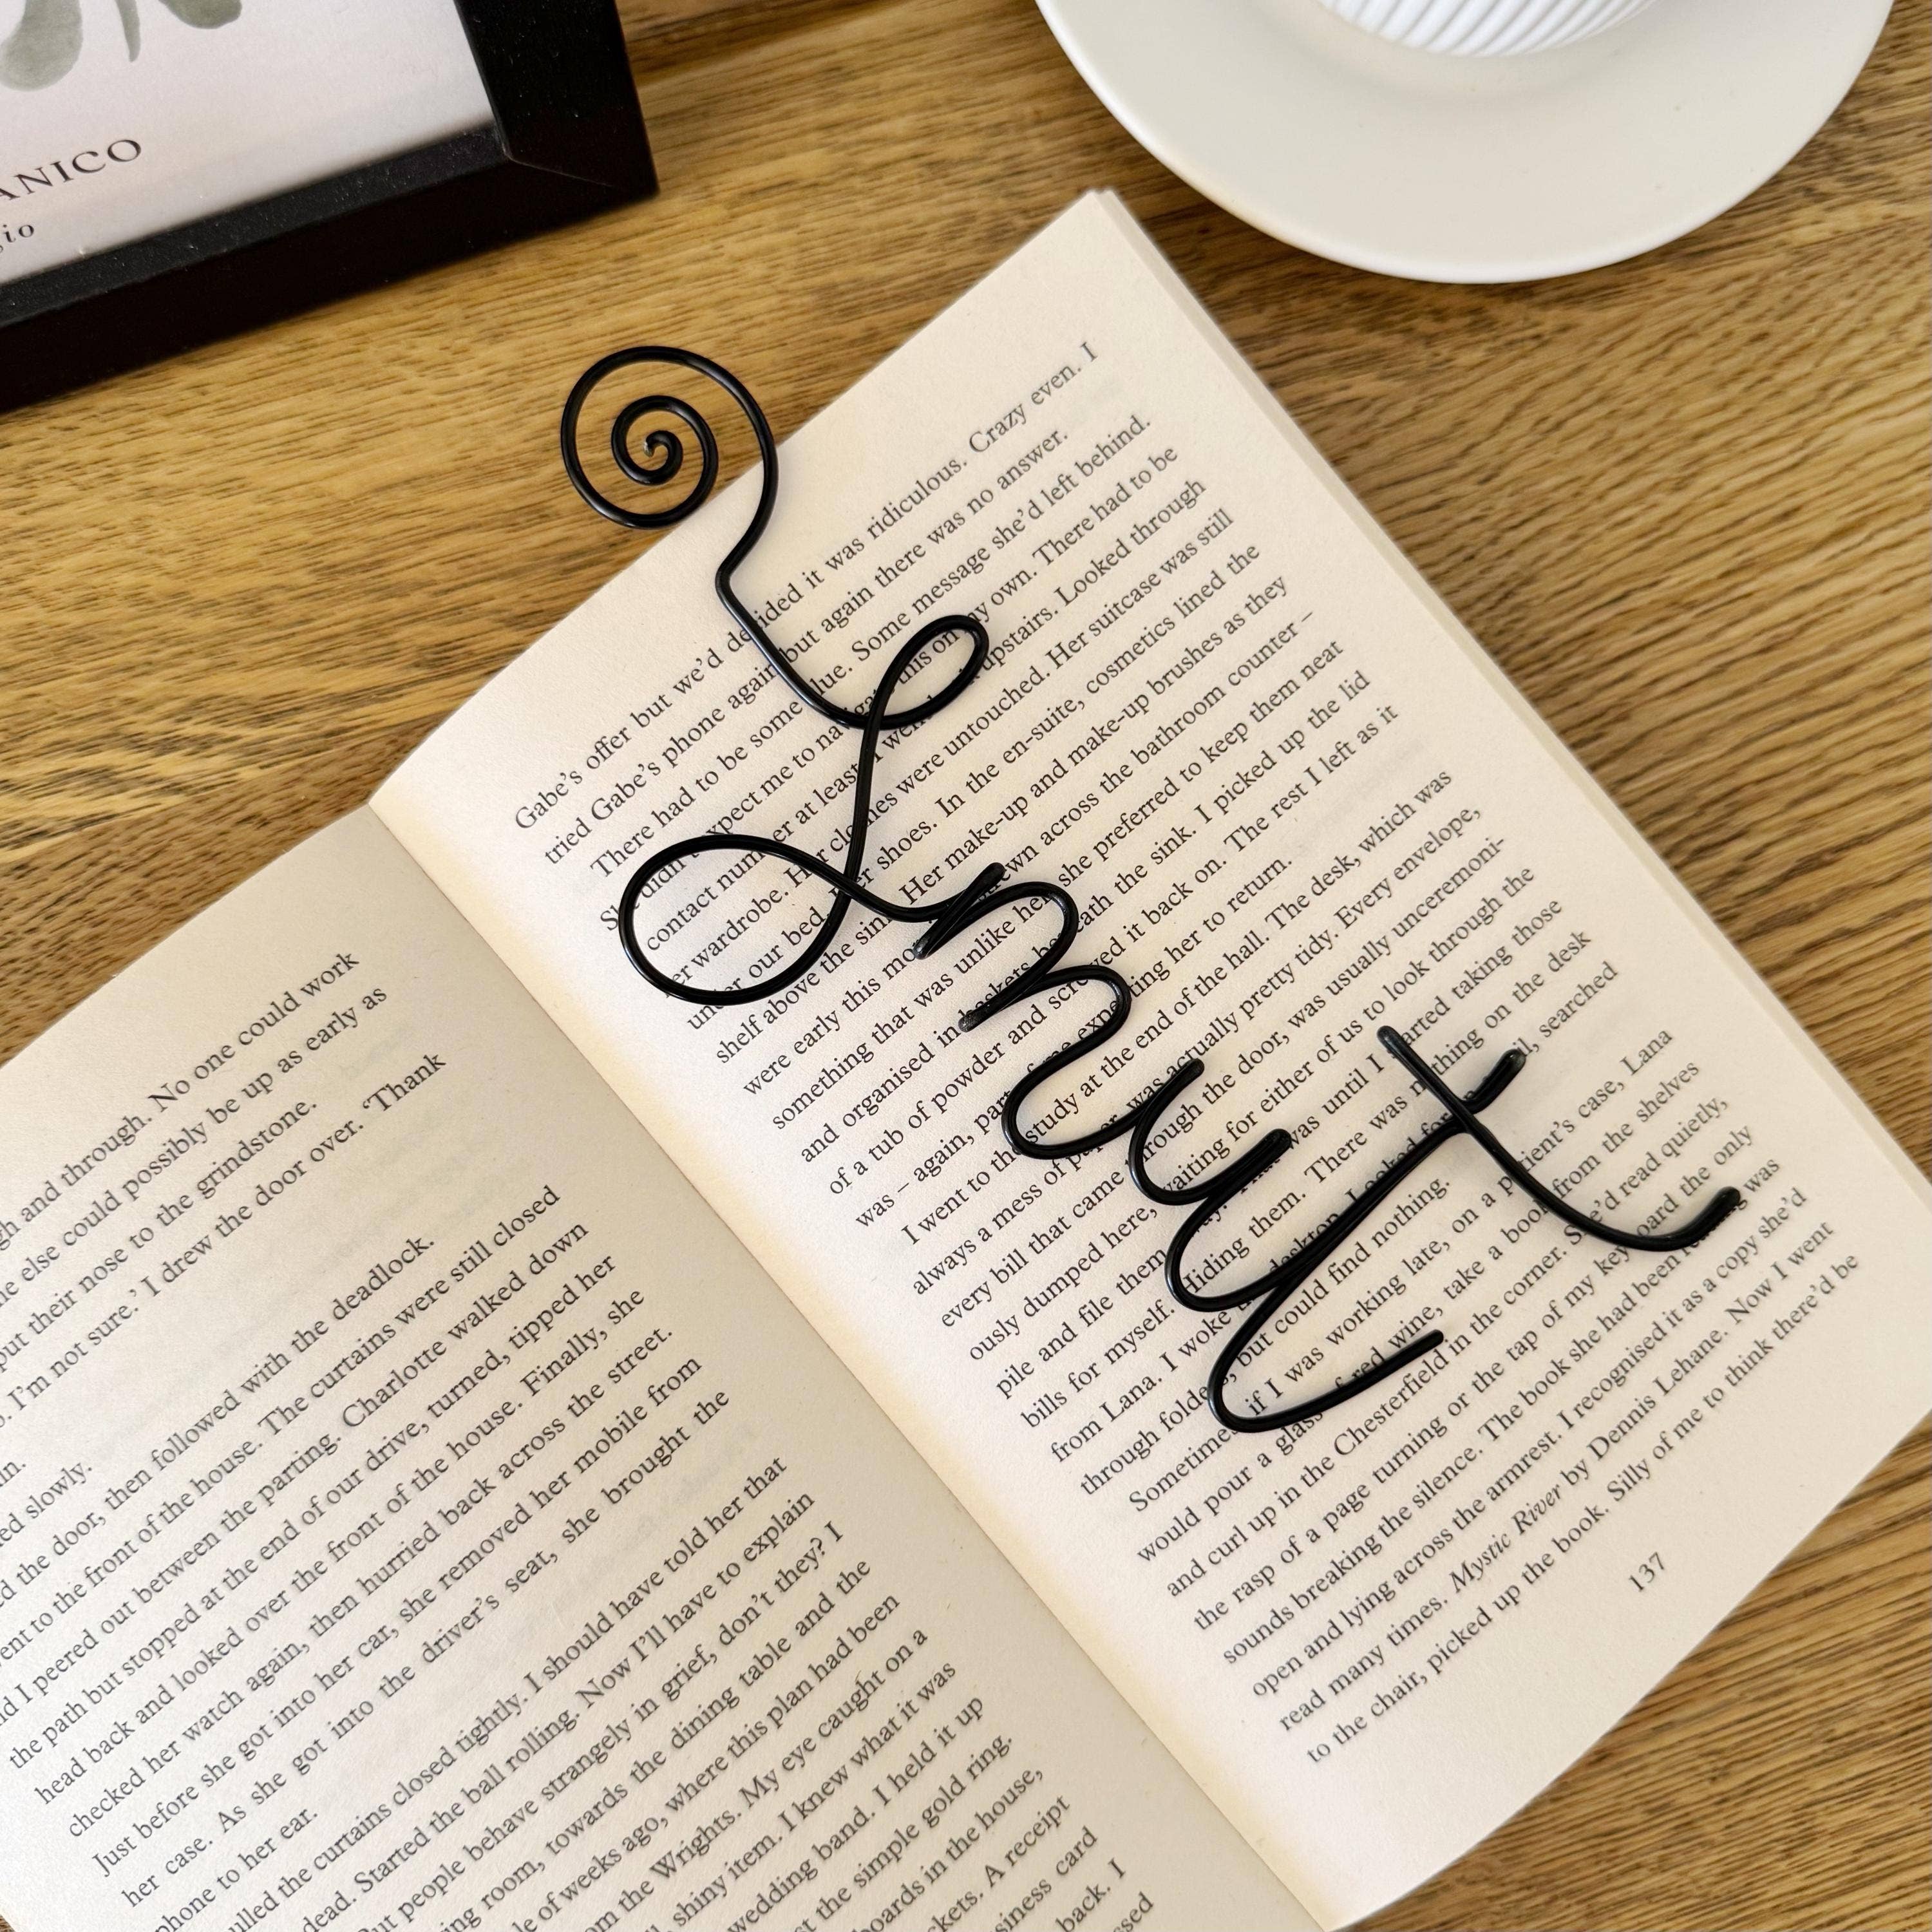 ANICO
gio
Smut
gh and through. No one could work
else could possibly be up as early as
put their nose to the grindstone.
I'm not sure.' I drew the door over. 'Thank
slowly.
the door, then followed with the deadlock.
went to the front of the house. The curtains were still closed
I peered out between the parting. Charlotte walked down
the path but stopped at the end of our drive, turned, tipped her
head back and looked over the front of the house. Finally, she
checked her watch again, then hurried back across the street.
Just before she got into her car, she removed her mobile from
her case. As she got into the driver's seat, she brought the
phone to her ear.
the curtains closed tightly. I should have told her that
dead. Started the ball rolling. Now I'll have to explain
But people behave strangely in grief, don't they? I
room, towards the dining table and the
of weeks ago, where this plan had been
the Wrights. My eye caught on a
shiny item. I knew what it was
wedding band. I held it up
the simple gold ring.
in the house,
A receipt
card
back. I
Gabe's offer but we'd decided it was ridiculous. Crazy even. I
tried Gabe's phone again but again there was no answer.
There had to be some clue. Some message she'd left behind.
She didn't expect me to navigate this on my own. There had to be
contact number at least. I went upstairs. Looked through
her wardrobe. Her clothes were untouched. Her suitcase was still
under our bed. Her shoes. In the en-suite, cosmetics lined the
shelf above the sink. Her make-up and make-up brushes as they
were early this strewn across the bathroom counter –
something that was unlike her, she preferred to keep them neat
and organised in baskets beneath the sink. I picked up the lid
of a tub of powder and screwed it back on. The rest I left as it
was – again, part of me expecting her to return.
I went to the study at the end of the hall. The desk, which was
always a mess of paper, was actually pretty tidy. Every envelope,
every bill that came through the door, was usually unceremoni-
ously dumped here, waiting for either of us to look through the
pile and file them was until I started taking those
bills for myself. Hiding them. There was nothing on the desk
from Lana. I woke desktop. Looked for searched
through folders, but could find nothing.
Sometimes if I was working late, on a patient's case, Lana
would pour a glass of red wine, take a book from the shelves
and curl up in the Chesterfield in the corner. She'd read quietly,
the rasp of a page turning or the tap of my keyboard the only
sounds breaking the silence. The book she had been was
open and lying across the armrest. I recognised it as a copy she'd
read many times. Mystic River by Dennis Lehane. Now I went
to the chair, picked up the book. Silly of me to think there'd be
137